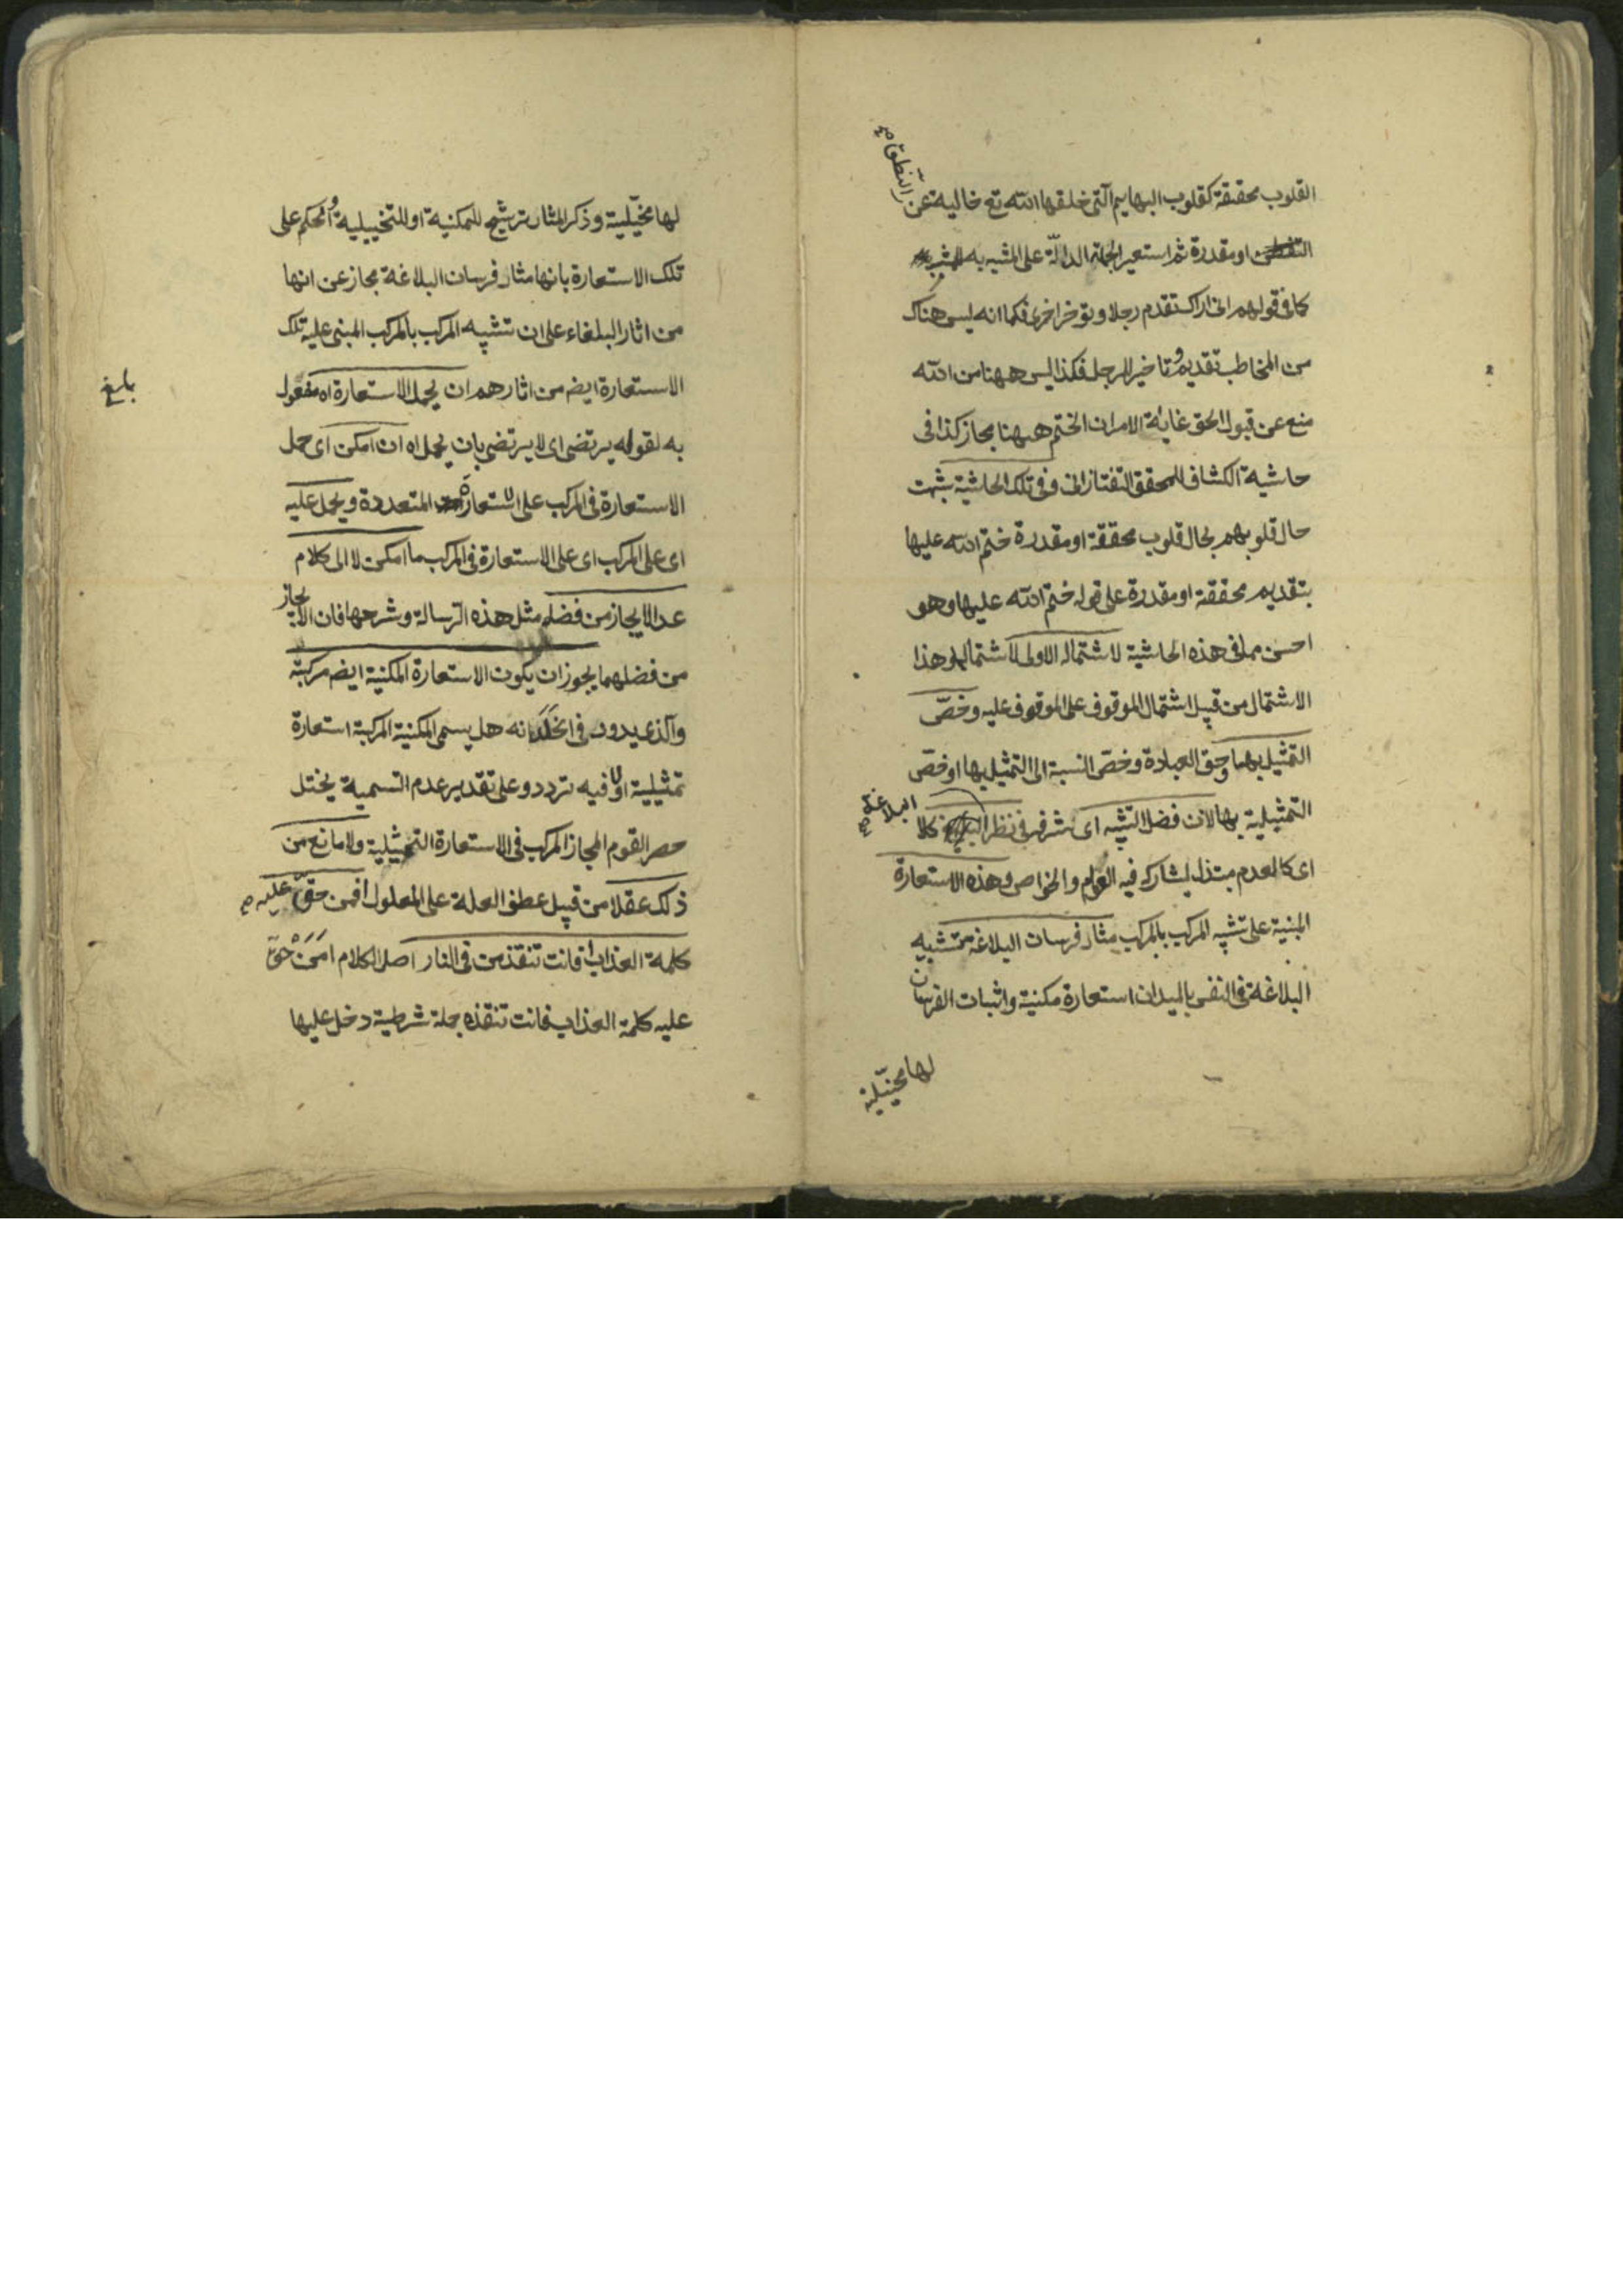 القلوب محققة كقلوب البهايم التى خلقها الله تع خالية عن النطق صح
او مقدرة ثم استعير الجملة الدالة على المشبه به
كما فى قولهم انى اراك تقدم رجلا وتؤخر اخرى فكما انه ليس هناك
من المخاطب تقديم وتاخير للرجل فكذا ليس ههنا من الله
منع عن قبول الحق غاية الامر ان الختم ههنا مجاز كذا فى
حاشية الكشاف للمحقق التفتازانى وفى تلك الحاشية شبهت
حال قلوبهم بحال قلوب محققة او مقدرة ختم الله عليها
بتقديم محققة او مقدرة على قوله ختم الله عليها وهو
احسن مما فى هذه الحاشية لاشتمال الاولى لاشتمالها وهذا
الاشتمال من قبيل اشتمال الموقوف على الموقوف عليه وخصّ
التمثيل بهما وحق العبادة وخص النسبة الى التمثيل بها او خص
التمثيلية بها لان فضل التشبيه اى شرفه فى نظر البلاغة صح كلا
اى كالعدم مبتذل يشارك فيه العوام والخواص وهذه الاستعارة
المبنية على تشبيه المركب بالمركب مثار فرسان البلاغة تشبيه
البلاغة فى النفس بالميدان استعارة مكنية واثبات الفرسان
لها تخييلية
لها تخييلية وذكر المثار ترشيح للمكنية او للتخييلية والحكم على
تلك الاستعارة بانها مثار فرسان البلاغة مجاز عن انها
من اثار البلغاء على ان تشبيه المركب بالمركب المبنى عليه تلك
الاستعارة ايض من اثارهم ان يحمل الاستعارة اه مفعول
بالغ
به لقوله يرتضى اى لا يرتضى بان يحمل اه ان امكن اى حمل
الاستعارة فى المركب على الاستعارة المتعددة ويحمل عليه
اى على المركب اى على الاستعارة فى المركب ما امكن لا الى كلام
عد الايجاز من فضله مثل هذه الرسالة وشرحها فان الايجاز
من فضلهما يجوز ان يكون الاستعارة المكنية ايض مركبة
والذى يدور فى الخلد انه هل يسمى المكنية المركبة استعارة
تمثيلية او لا فيه تردد وعلى تقدير عدم التسمية يختل
حصر القوم المجاز المركب فى الاستعارة التمثيلية ولا مانع من
ذلك عقلا من قبيل عطف العلة على المعلول افمن حق عليه صح
كلمة العذاب افانت تنقذ من فى النار اصل الكلام اَمَنْ حَقَّ
عليه كلمة العذاب فانت تنقذه جملة شرطية دخل عليها